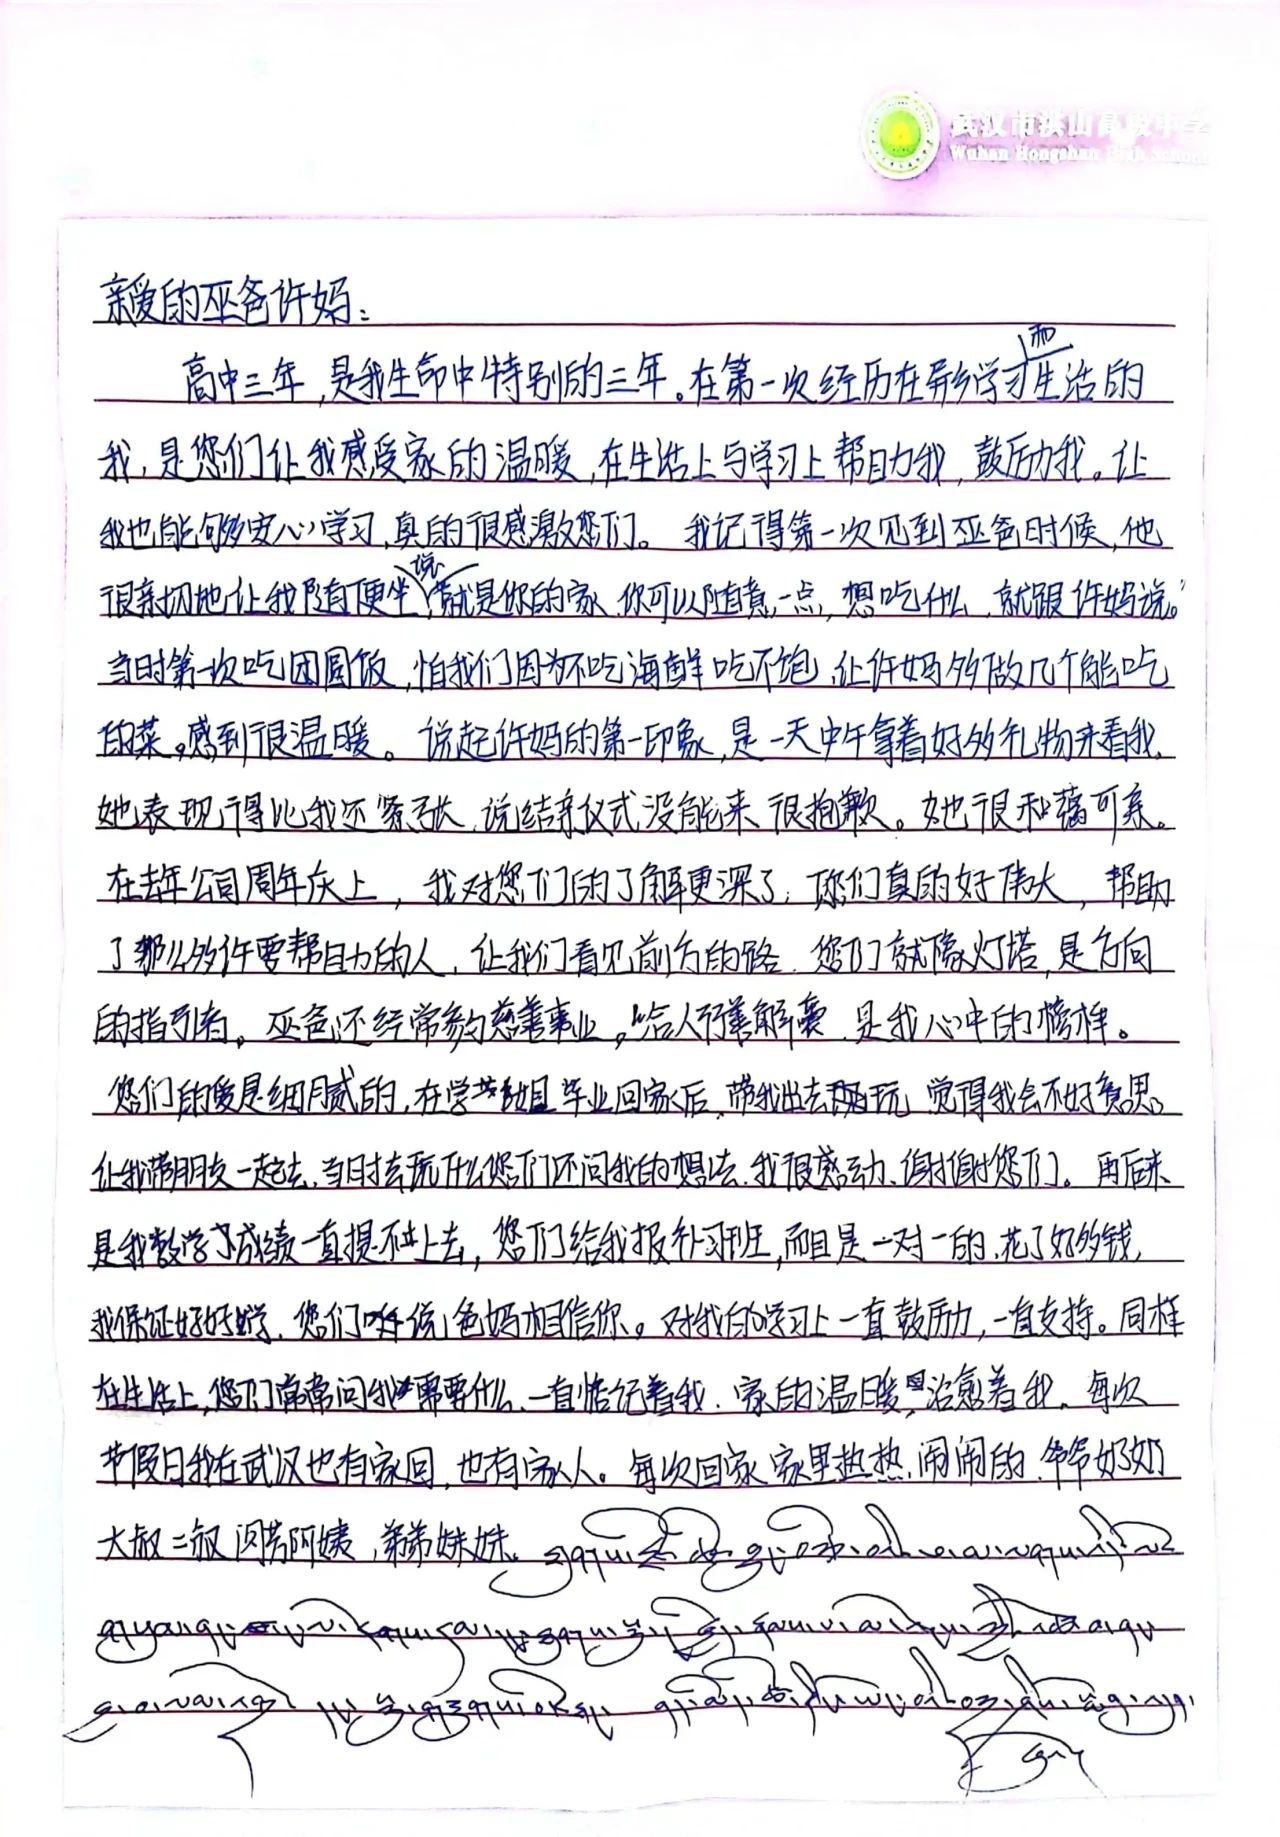 武汉市洪山高级中学
Wuhan Hongshan High School
亲爱的巫爸许妈：
和
高中三年，是我生命中特别的三年。在第一次经历在异乡学习生活的
我，是您们让我感受家的温暖，在生活上与学习上帮助我，鼓历力我。让
我也能够安心学习，真的很感激您们。我记得第一次见到巫爸时候，他
说
很亲切地让我随便坐，"就是你的家，你可以随意一点，想吃什么，就跟许妈说。"
当时第一次吃团圆饭，怕我们因为不吃海鲜吃不饱，让许妈多做几个能吃
的菜，感到很温暖。说起许妈的第一印象，是一天中午拿着好多礼物来看我，
她表现得比我还紧张，说结亲仪式没能来，很抱歉。她很和蔼可亲。
在去年公司周年庆上，我对您们的了解更深了，您们真的好伟大，帮助
了那么多许要帮助的人，让我们看见前方的路，您们就像灯塔，是方向
的指引者。巫爸还经常参与慈善事业，给人行善解囊，是我心中的榜样。
您们的爱是细腻的，在学姐毕业回家后，带我出去玩，觉得我会不好意思，
让我带朋友一起去，当时去玩什么您们还问我的想法，我很感动，谢谢您们。再后来
是我数学成绩一直提不上去，您们给我报补习班，而且是一对一的，花了好多钱，
我保证好好学，您们说爸妈相信你。对我的学习上一直鼓历力，一直支持。同样
在生活上，您们常常问我需要什么，一直惦记着我，家的温暖，治愈着我，每次
节假日我在武汉也有家回，也有家人。每次回家，家里热热闹闹的，爷爷奶奶
大叔二叔闵芳阿姨，弟弟妹妹。